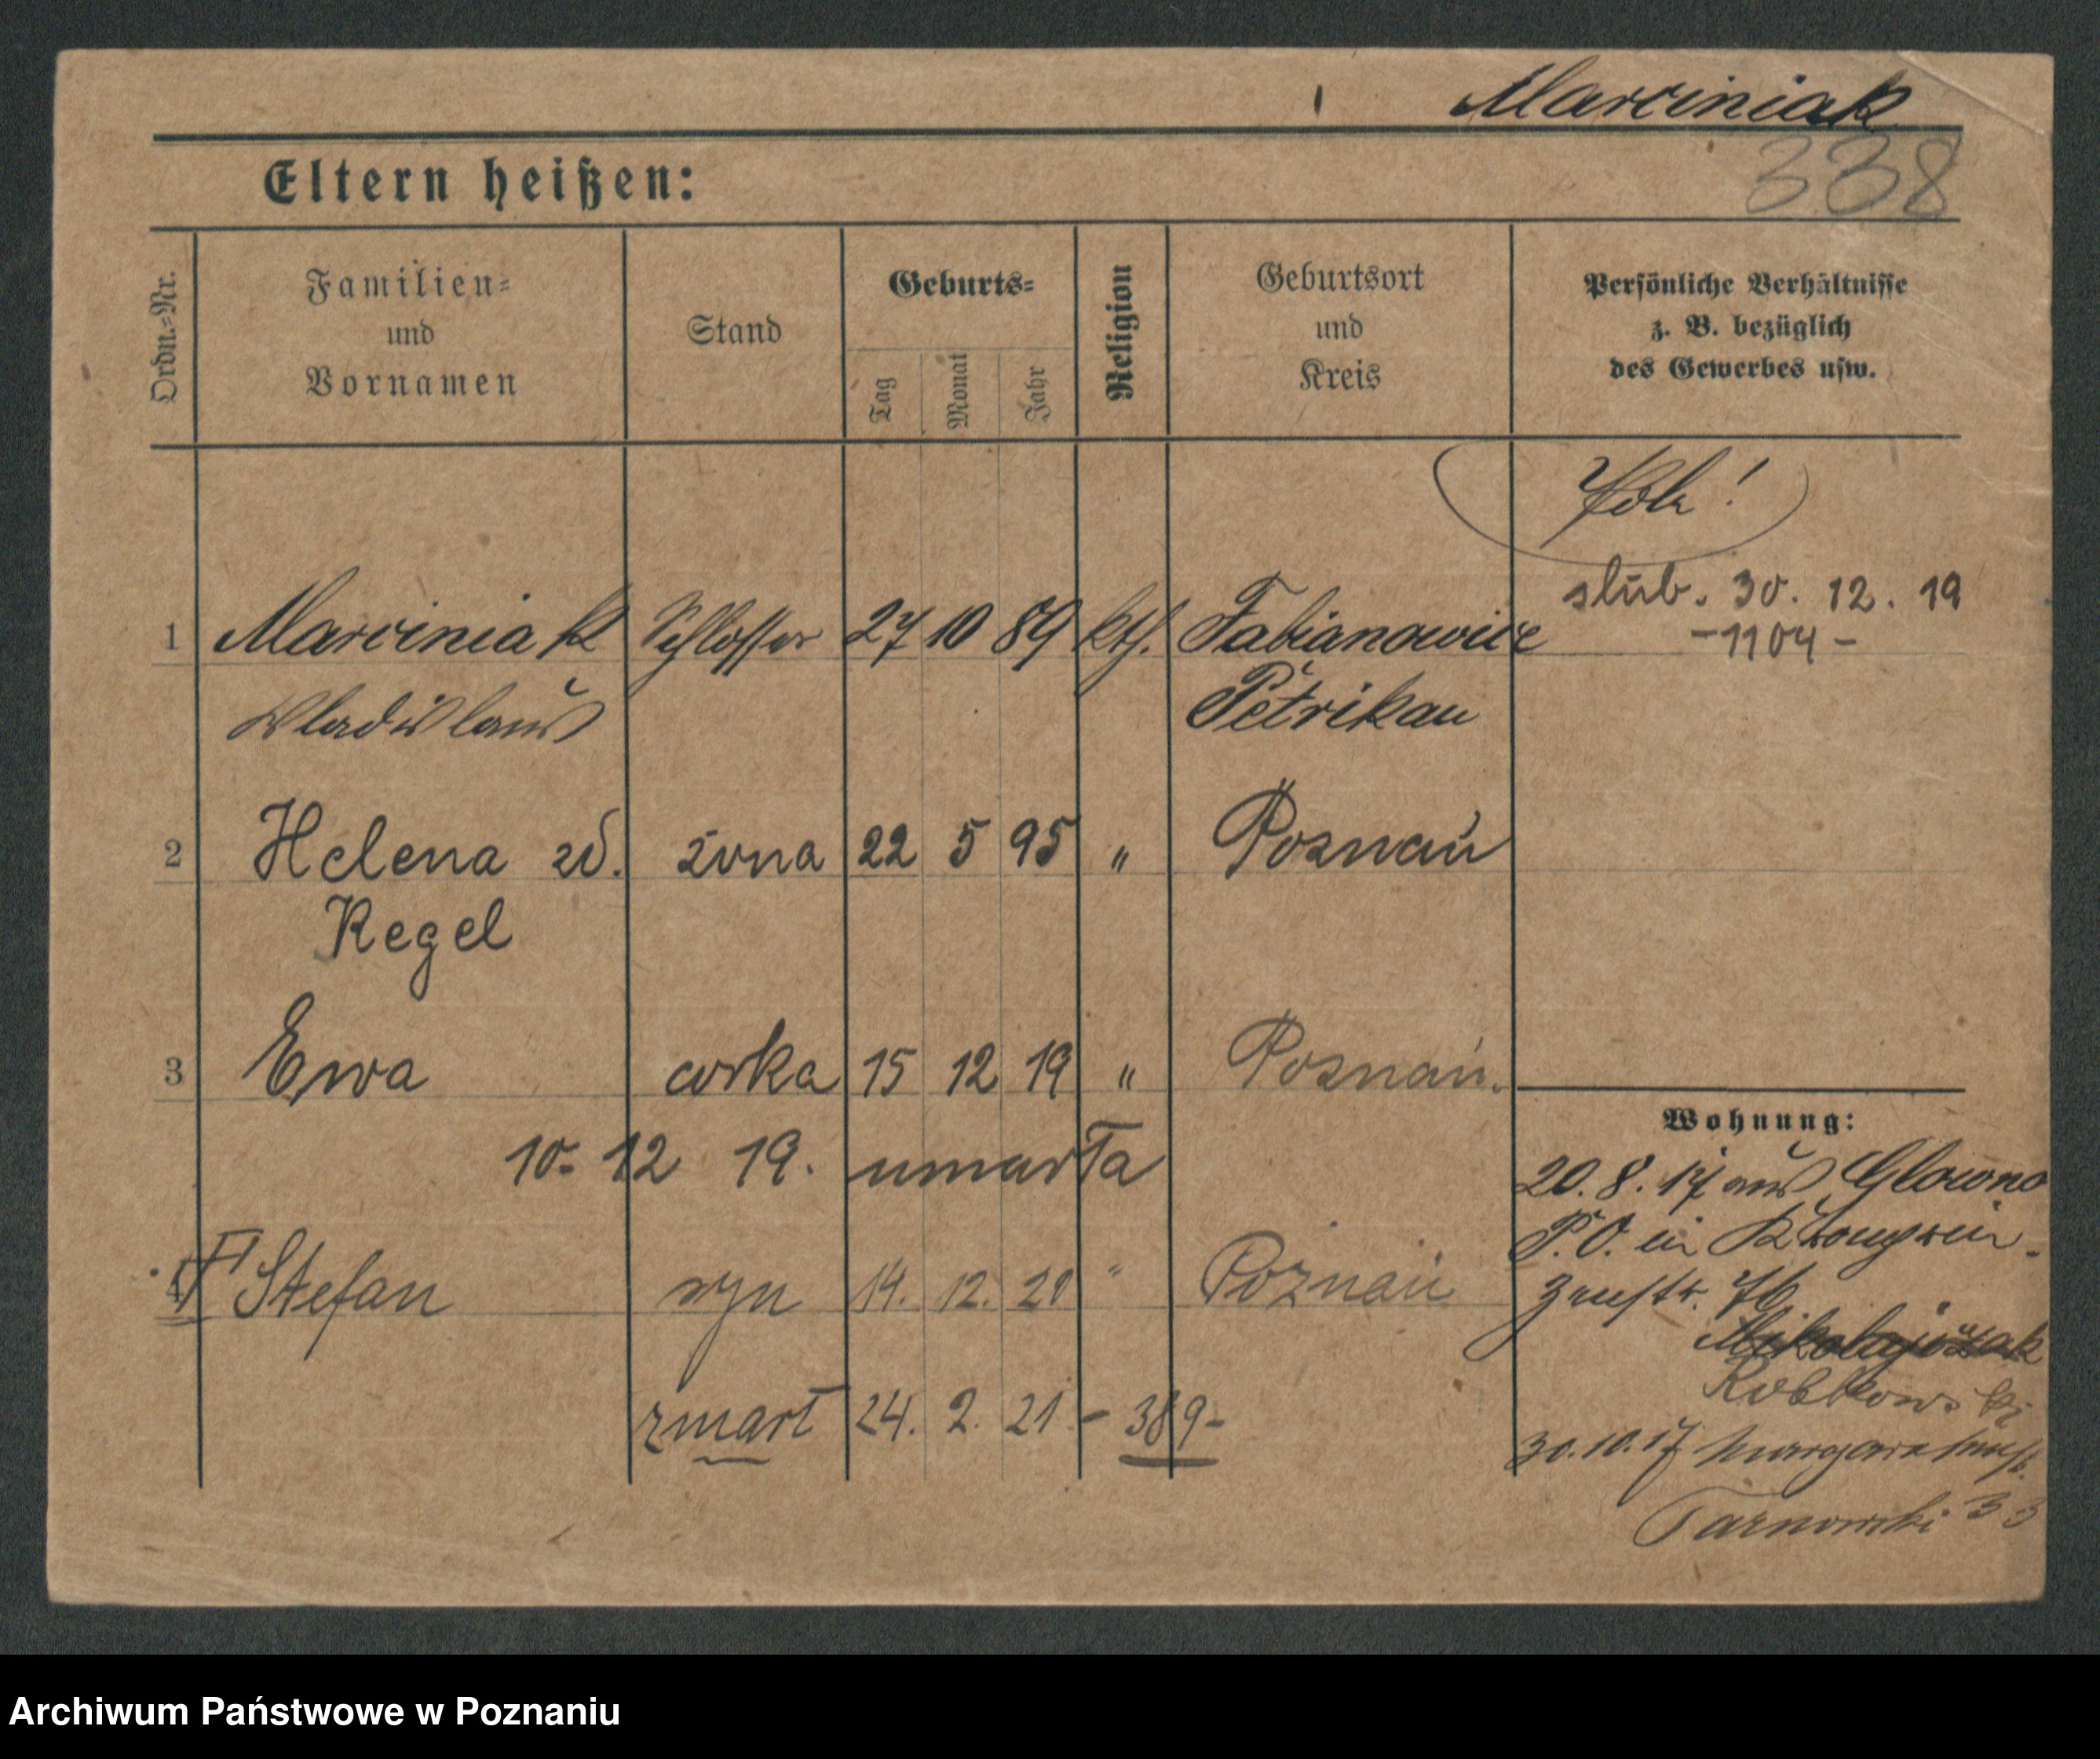 Marciniak
338
Eltern heißen:
Ordn.-Nr.
Familien-
und
Vornamen
Stand
Geburts-
Tag
Monat
Jahr
Religion
Geburtsort
und
Kreis
Persönliche Verhältnisse
z. B. bezüglich
des Gewerbes usw.
ślub. 30. 12. 19
-1104-
1 Marciniak Schlosser 27 10 89 kth. Fabianowice
Wladislaus Petrikau
2 Helena zd. żona 22 5 95 " Poznań
Regel
3 Ewa corka 15 12 19 " Poznań.
10. 12 19. umarła
4 Stefan syn 14. 12. 20 " Poznań
zmarł 24. 2. 21 - 389-
Wohnung:
20. 8. 17 aus Glowno
P. O. in Kronprin-
zenstr. 76
Mikolajczak
30. 10. 17 Margaretenst.
Tarnowski 33
Archiwum Państwowe w Poznaniu